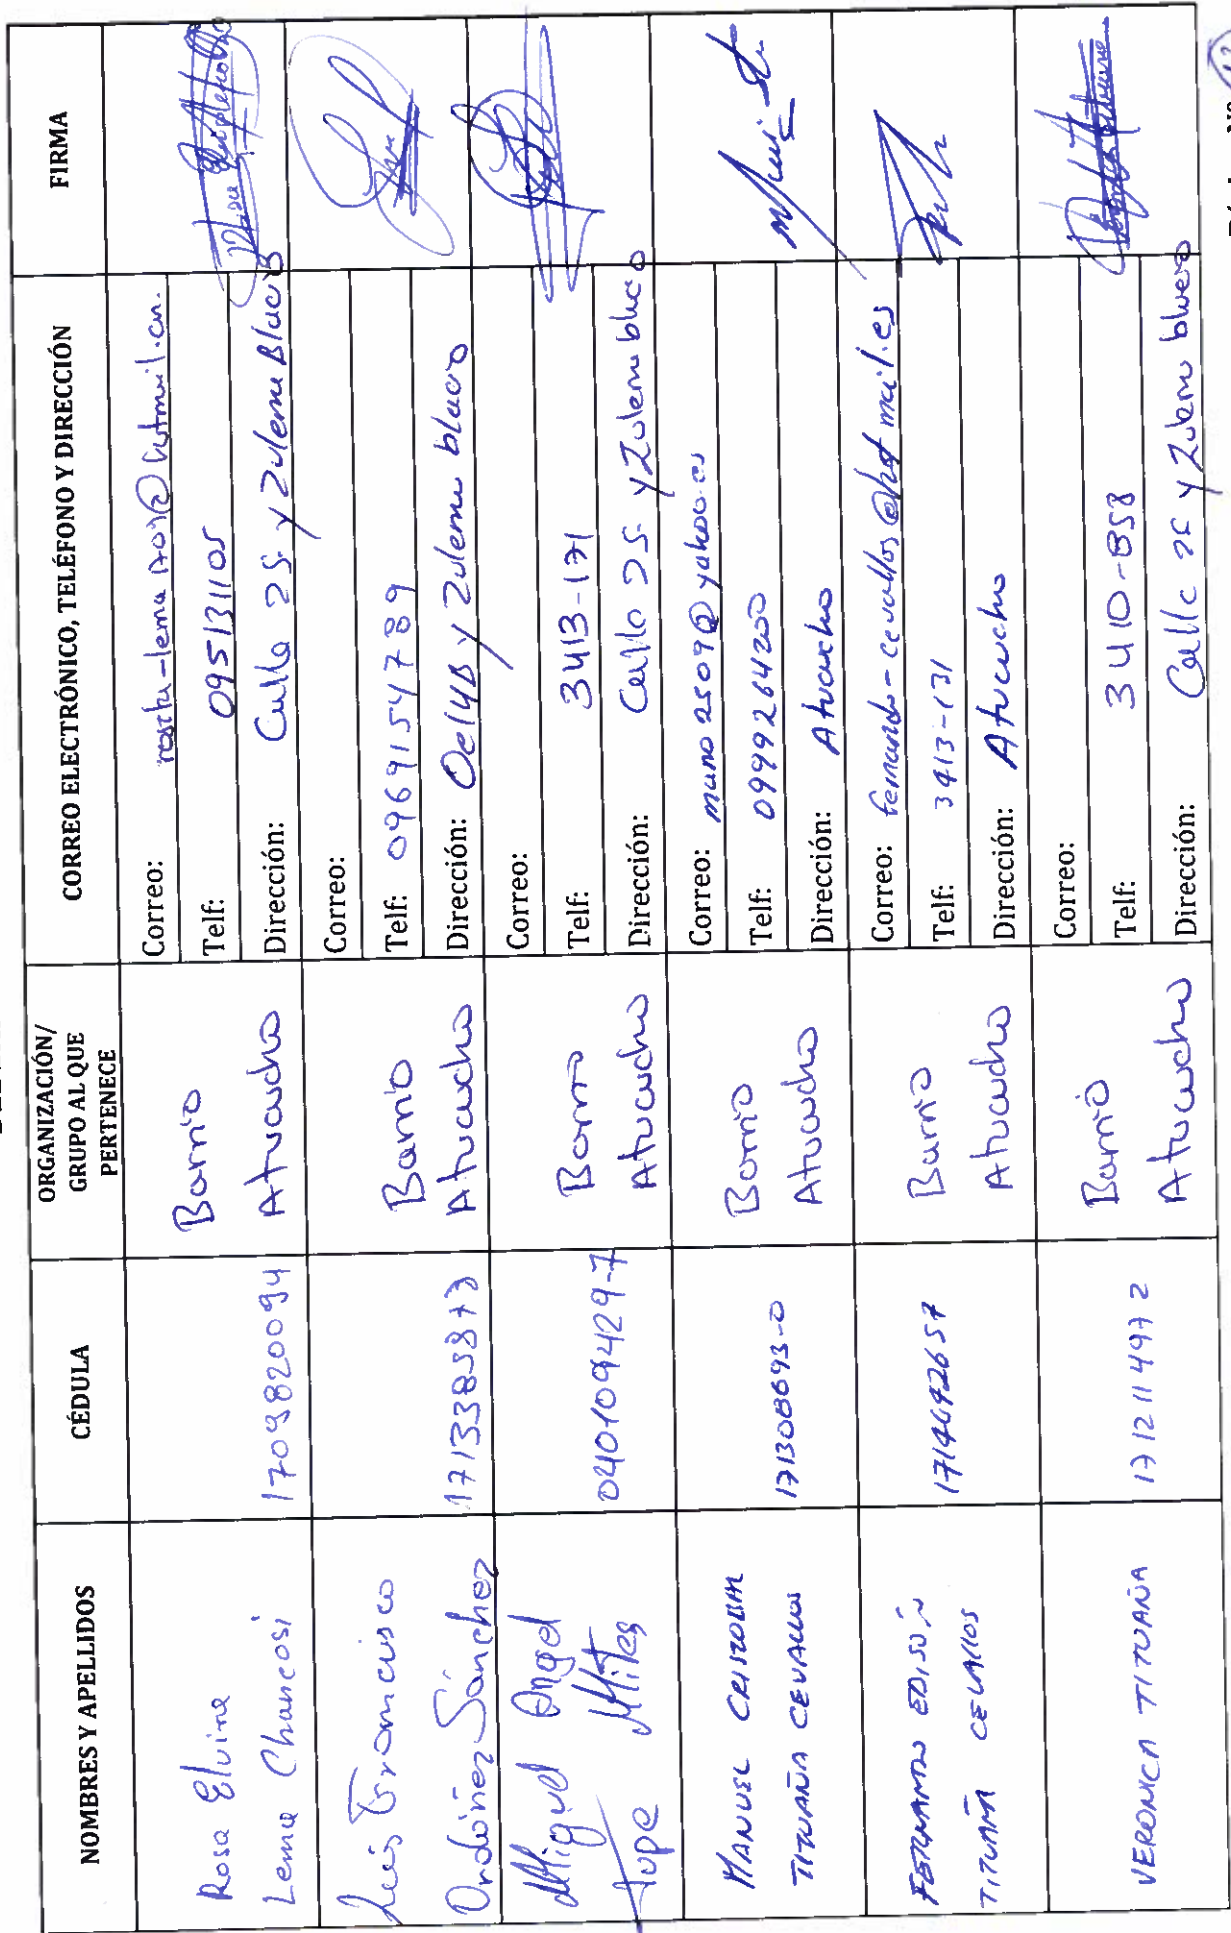 NOMBRES Y APELLIDOS
CÉDULA
ORGANIZACIÓN/
GRUPO AL QUE
PERTENECE
CORREO ELECTRÓNICO, TELÉFONO Y DIRECCIÓN
FIRMA
Rosa Elvira
Lema Chancosi
1709820094
Barrio
Atucucho
Correo:
Telf: 095131105
Dirección: Calle 25 y Zulema Blacio
Luis Francisco
Ordóñez Sánchez
Barrio
Atucucho
Correo:
Telf: 0969154789
Dirección: Oe14B y Zulema blacio
Miguel Angel
Tupe Mites
040109429-7
Barrio
Atucucho
Correo:
Telf: 3413-171
Dirección: Calle 25 y Zulema blacio
MANUEL CRISTOBAL
TITUAÑA CEVALLOS
171308693-0
Barrio
Atucucho
Correo: mano2509@yahoo.es
Telf: 0999264200
Dirección: Atucucho
FERNANDO EDISON
TITUAÑA CEVALLOS
Barrio
Atucucho
Correo: fernando-cevallos@hotmail.es
Telf: 3413-131
Dirección: Atucucho
VERONICA TITUAÑA
1712114972
Barrio
Atucucho
Correo:
Telf: 3410-858
Dirección: Calle 25 y Zulema